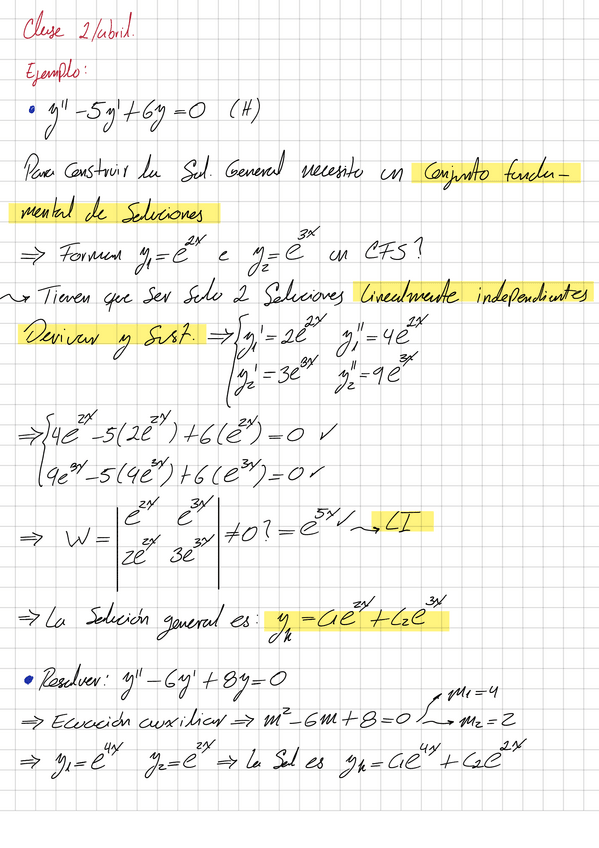 Clase 2/abril.
Ejemplo:
• y'' - 5y' + 6y = 0 (H)
Para Construir la Sol. General necesito un Conjunto funda-
mental de Soluciones
⇒ Forman y₁ = e^{2x} e y₂ = e^{3x} un CFS?
⇝ Tienen que ser Solo 2 Soluciones linealmente independientes
Derivar y Sust. ⇒ { y₁' = 2e^{2x} y₁'' = 4e^{2x}
y₂' = 3e^{3x} y₂'' = 9e^{3x}
⇒ { 4e^{2x} - 5(2e^{2x}) + 6(e^{2x}) = 0 ✓
9e^{3x} - 5(4e^{3x}) + 6(e^{3x}) = 0 ✓
⇒ W = | e^{2x} e^{3x} | ≠ 0? = e^{5x} ✓ ⇝ LI
| 2e^{2x} 3e^{3x} |
⇒ La Solución general es: y_h = C₁e^{2x} + C₂e^{3x}
• Resolver: y'' - 6y' + 8y = 0
⇒ Ecuación auxiliar ⇒ m² - 6m + 8 = 0 → m₁ = 4
→ m₂ = 2
⇒ y₁ = e^{4x} y₂ = e^{2x} ⇒ la Sol es y_h = C₁e^{4x} + C₂e^{2x}